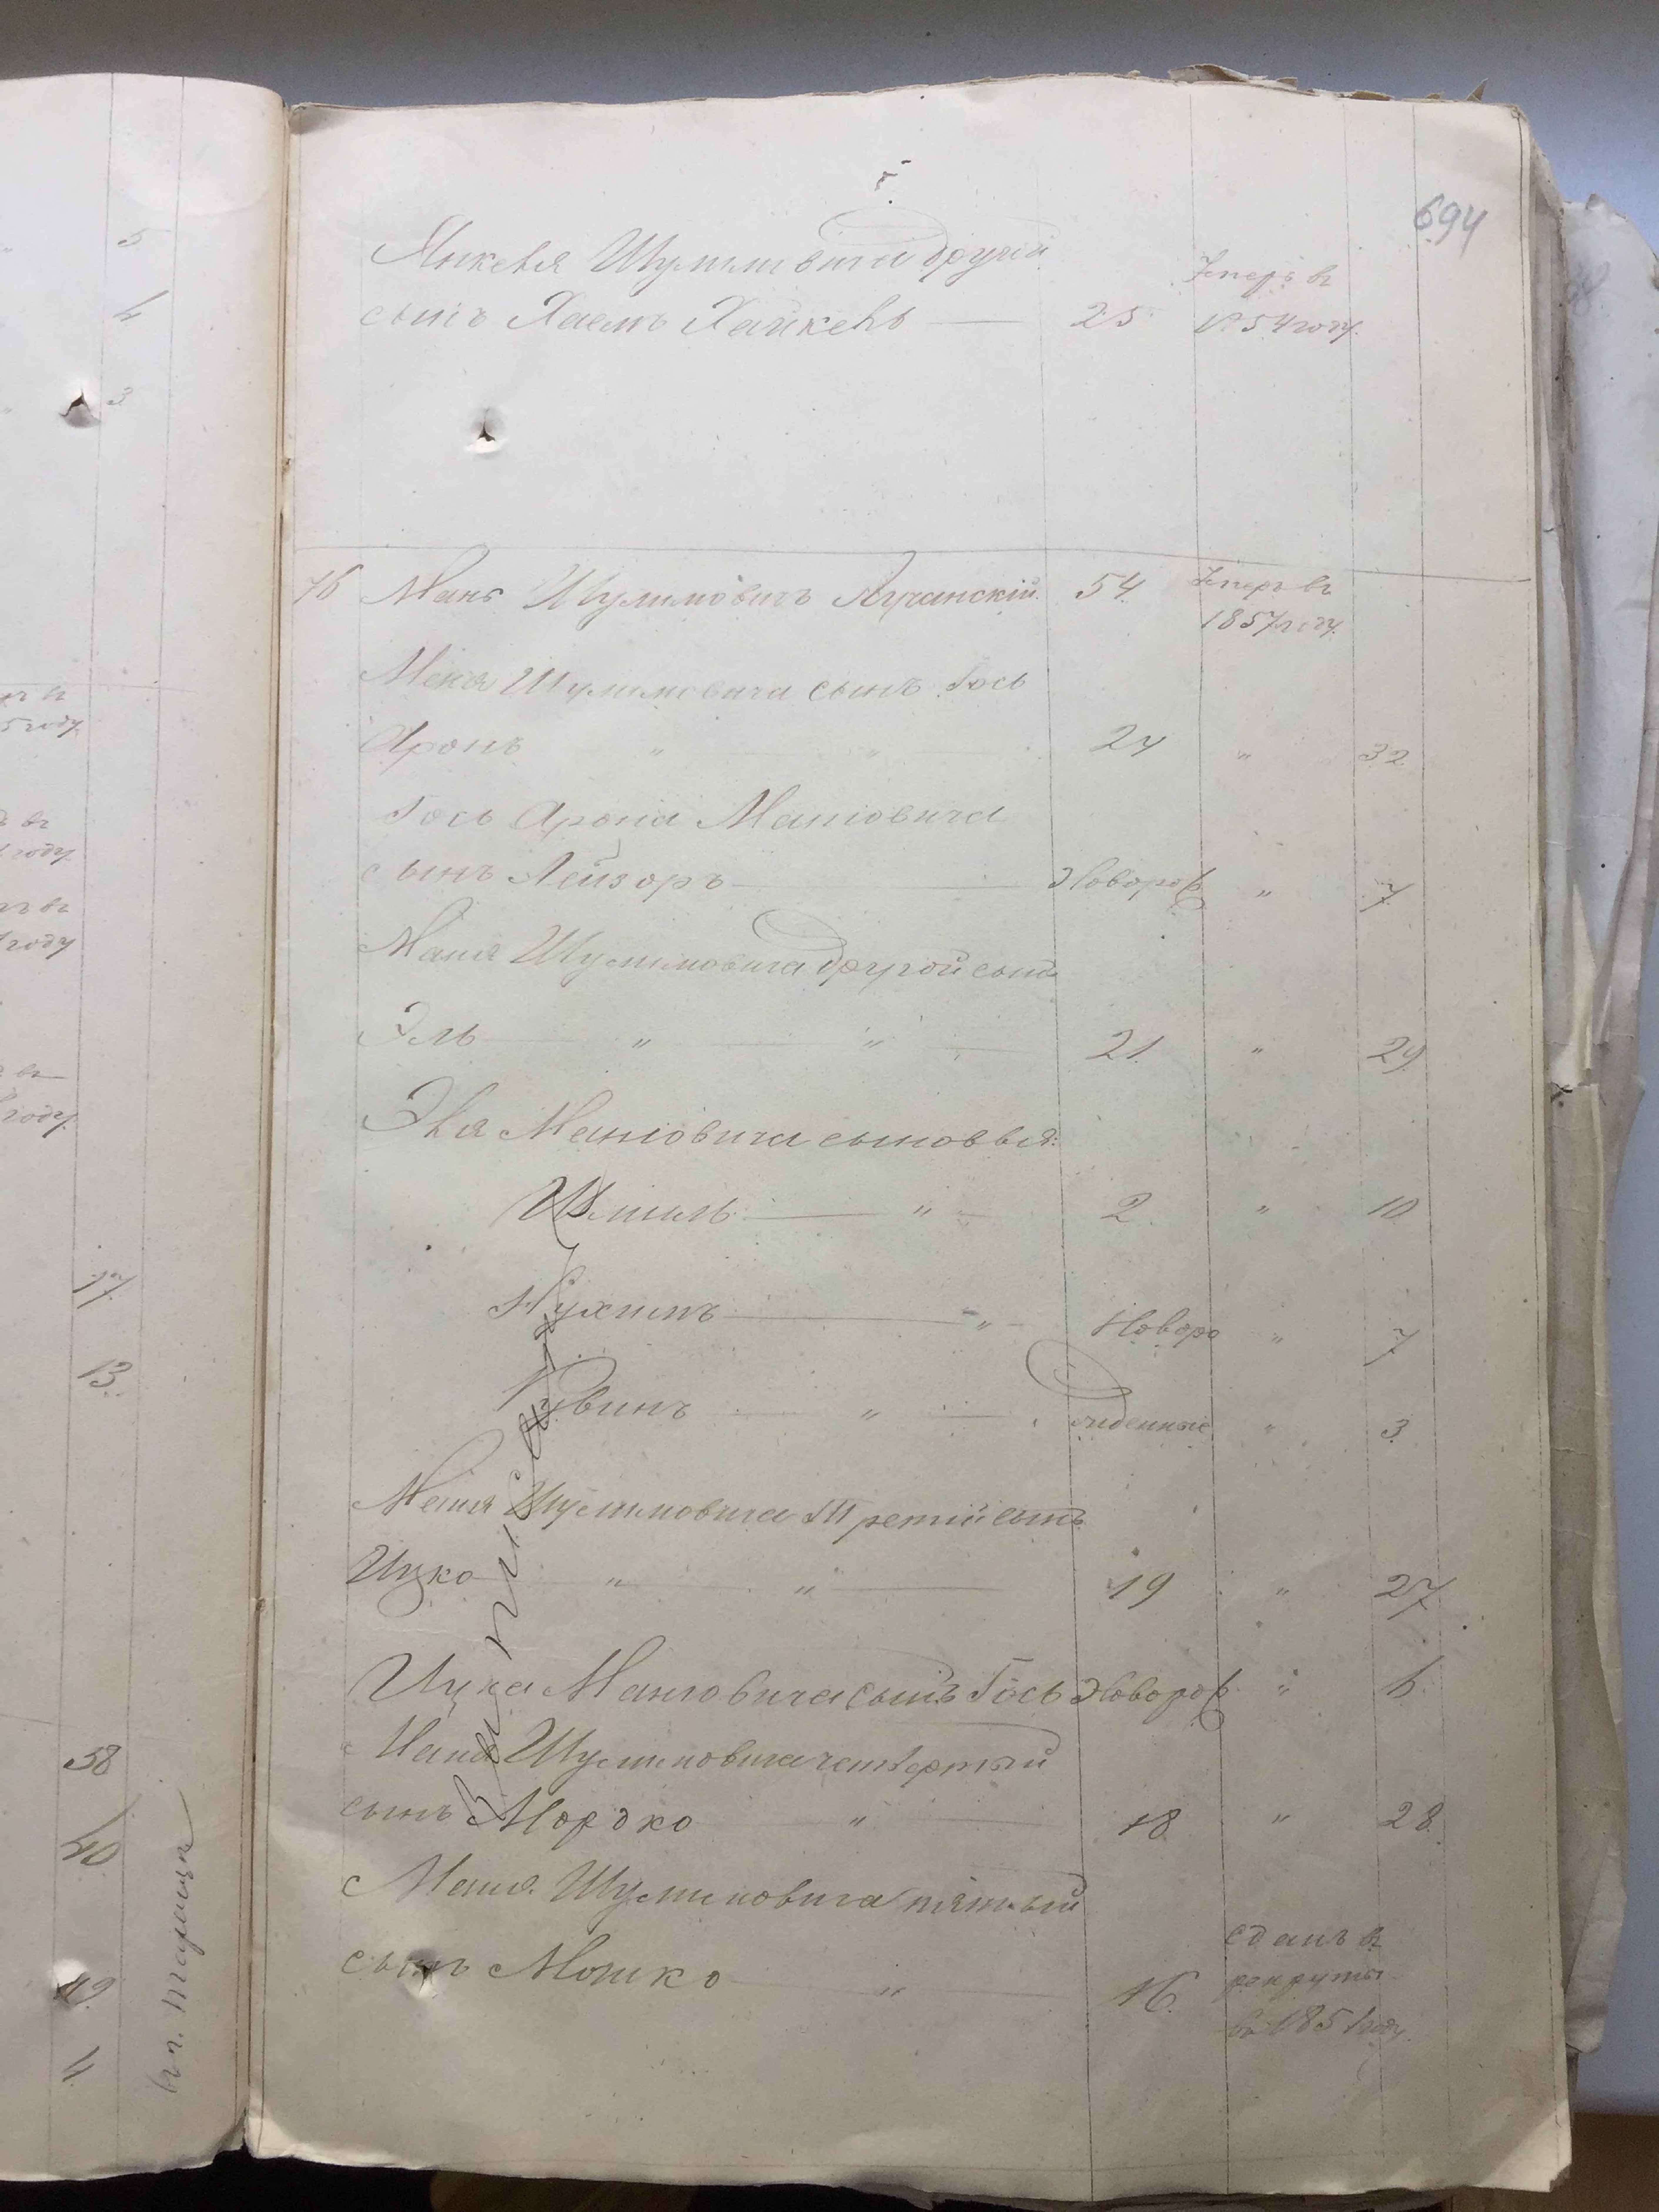 694
Янкеля Шулимовича другой
Умеръ въ
сынъ Хаемъ Хайкель 25 1854 году.
76 Мань Шулимовичъ Лучанскій. 54. Умеръ въ
1857 году.
Маня Шулимовича сынъ Гось
Аронъ " " 24 " 32
Гось Арона Маніовича
сынъ Лейзоръ Новорож " 7
Маня Шулимовича другой сынъ
Эль " " 21. " 29
Эля Маніовича сыновья:
Шмиль " 2. " 10
Нухимъ " Новоро " 7
Рувинъ " жденные " 3.
Маня Шулимовича Третій сынъ
Ицко " " 19 " 27
Ицка Маніовича сынъ Гось Новорож " 6.
Маня Шулимовича четвертый
сынъ Мордко " 18 " 28.
Маня Шулимовича пятый
сданъ въ
сынъ Мошко " 16. рекруты
въ 1851 году.
5
4
3
5 году.
въ
году.
въ
году
въ
году.
17.
13.
38
40
19.
4